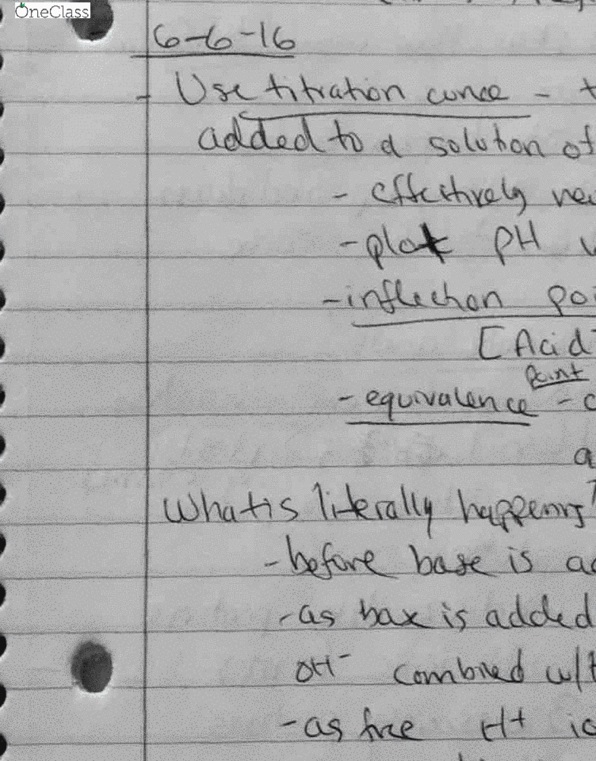 OneClass
6-6-16
- Use titration curve -
added to a solution of
- effectively
- plot pH
- inflection
[Acid
point
- equivalence -
a
What is literally happening?
- before base is
- as base is added
OH- combined w/
- as free H+